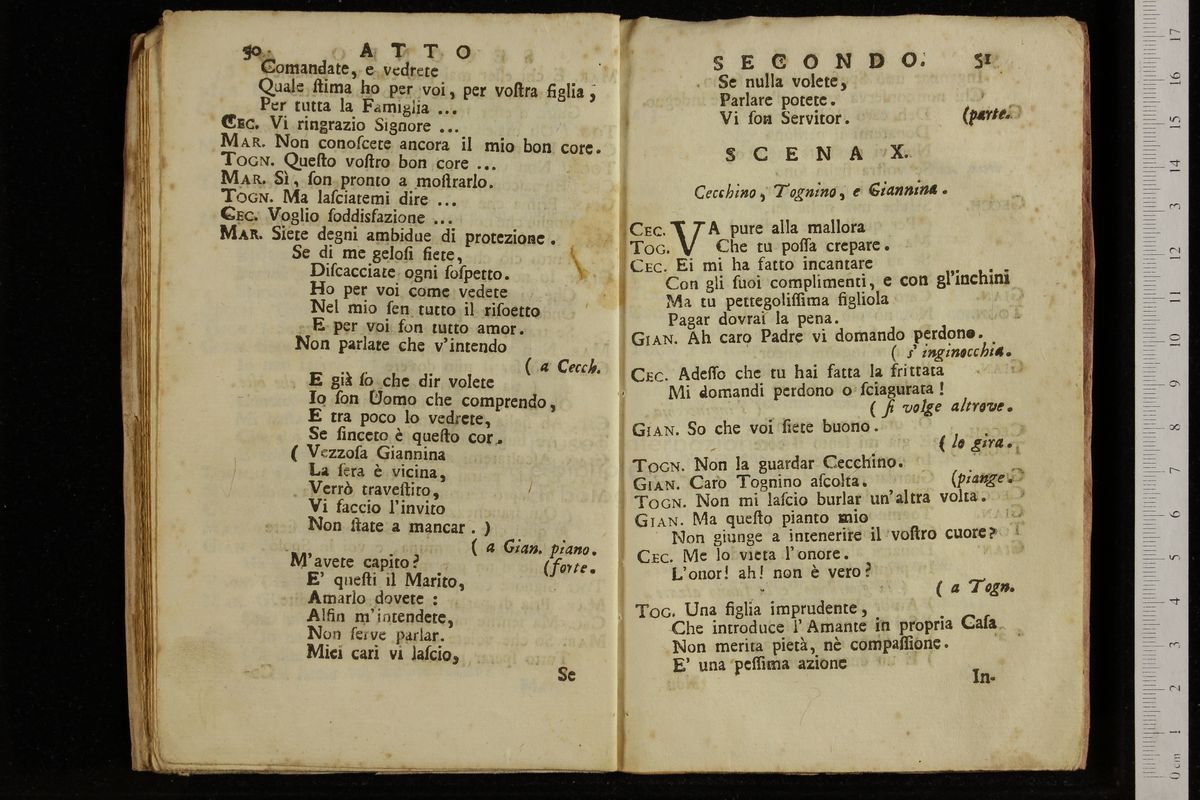 50. ATTO
Comandate, e vedrete
Quale ſtima ho per voi, per voſtra figlia,
Per tutta la Famiglia ...
CEC. Vi ringrazio Signore ...
MAR. Non conoſcete ancora il mio bon core.
TOGN. Queſto voſtro bon core ...
MAR. Sì, ſon pronto a moſtrarlo.
TOGN. Ma laſciatemi dire ...
CEC. Voglio ſoddisfazione ...
MAR. Siete degni ambidue di protezione.
Se di me geloſi ſiete,
Diſcacciate ogni ſoſpetto.
Ho per voi come vedete
Nel mio ſen tutto il riſoetto
E per voi ſon tutto amor.
Non parlate che v'intendo
( a Cecch.
E già ſo che dir volete
Io ſon Uomo che comprendo,
E tra poco lo vedrete,
Se ſinceto è queſto cor.
( Vezzoſa Giannina
La ſera è vicina,
Verrò traveſtito,
Vi faccio l'invito
Non ſtate a mancar. )
( a Gian. piano.
M'avete capito? (forte.
E' queſti il Marito,
Amarlo dovete :
Alfin m'intendete,
Non ſerve parlar.
Miei cari vi laſcio,
Se
SECONDO. 51
Se nulla volete,
Parlare potete.
Vi ſon Servitor. (parte.
SCENA X.
Cecchino, Tognino, e Giannina.
CEC. VA pure alla mallora
TOG. Che tu poſſa crepare.
CEC. Ei mi ha fatto incantare
Con gli ſuoi complimenti, e con gl'inchini
Ma tu pettegoliſſima figliola
Pagar dovrai la pena.
GIAN. Ah caro Padre vi domando perdono.
( s' inginocchia.
CEC. Adeſſo che tu hai fatta la frittata
Mi domandi perdono o ſciagurata !
( ſi volge altrove.
GIAN. So che voi ſiete buono.
( lo gira.
TOGN. Non la guardar Cecchino.
GIAN. Caro Tognino aſcolta. (piange.
TOGN. Non mi laſcio burlar un'altra volta.
GIAN. Ma queſto pianto mio
Non giunge a intenerire il voſtro cuore?
CEC. Me lo vieta l'onore.
L'onor! ah! non è vero?
( a Togn.
TOG. Una figlia imprudente,
Che introduce l'Amante in propria Caſa
Non merita pietà, nè compaſſione.
E' una peſſima azione
In-
0 cm 1 2 3 4 5 6 7 8 9 10 11 12 13 14 15 16 17